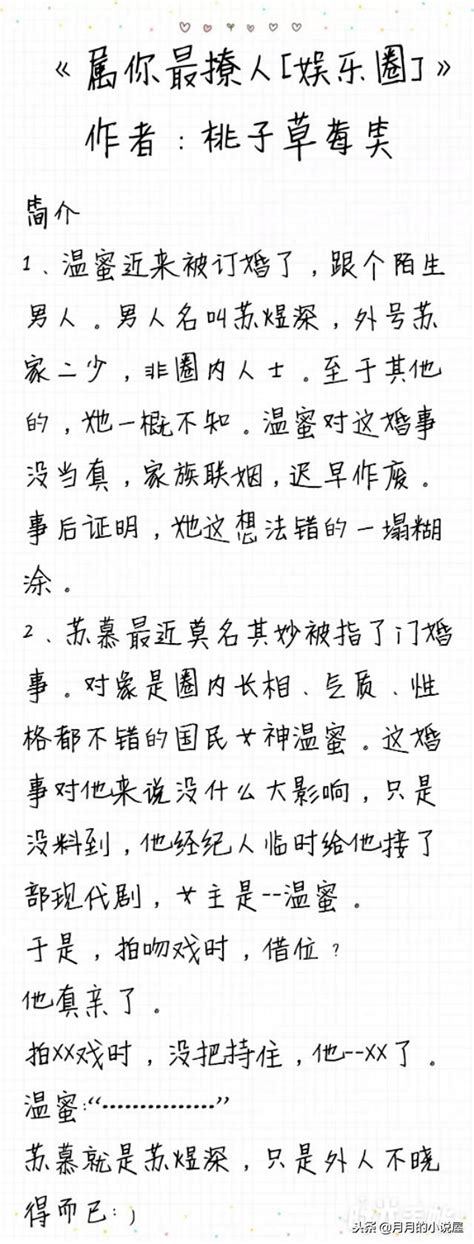 《属你最撩人[娱乐圈]》
作者:桃子草莓隽
简介
1、温蜜近来被订婚了,跟个陌生
男人。男人名叫苏煜深,外号苏
家二少,非圈内人士。至于其他
的,她一概不知。温蜜对这婚事
没当真,家族联姻,迟早作废。
事后证明,她这想法错的一塌糊
涂。
2、苏慕最近莫名其妙被指了门婚
事。对象是圈内长相、气质、性
格都不错的国民女神温蜜。这婚
事对他来说没什么大影响,只是
没料到,他经纪人临时给他接了
部现代剧,女主是--温蜜。
于是,拍吻戏时,借位?
他真亲了。
拍XX戏时,没把持住,他--XX了。
温蜜:“……………”
苏慕就是苏煜深,只是外人不晓
得而已:)
头条@月月的小说屋